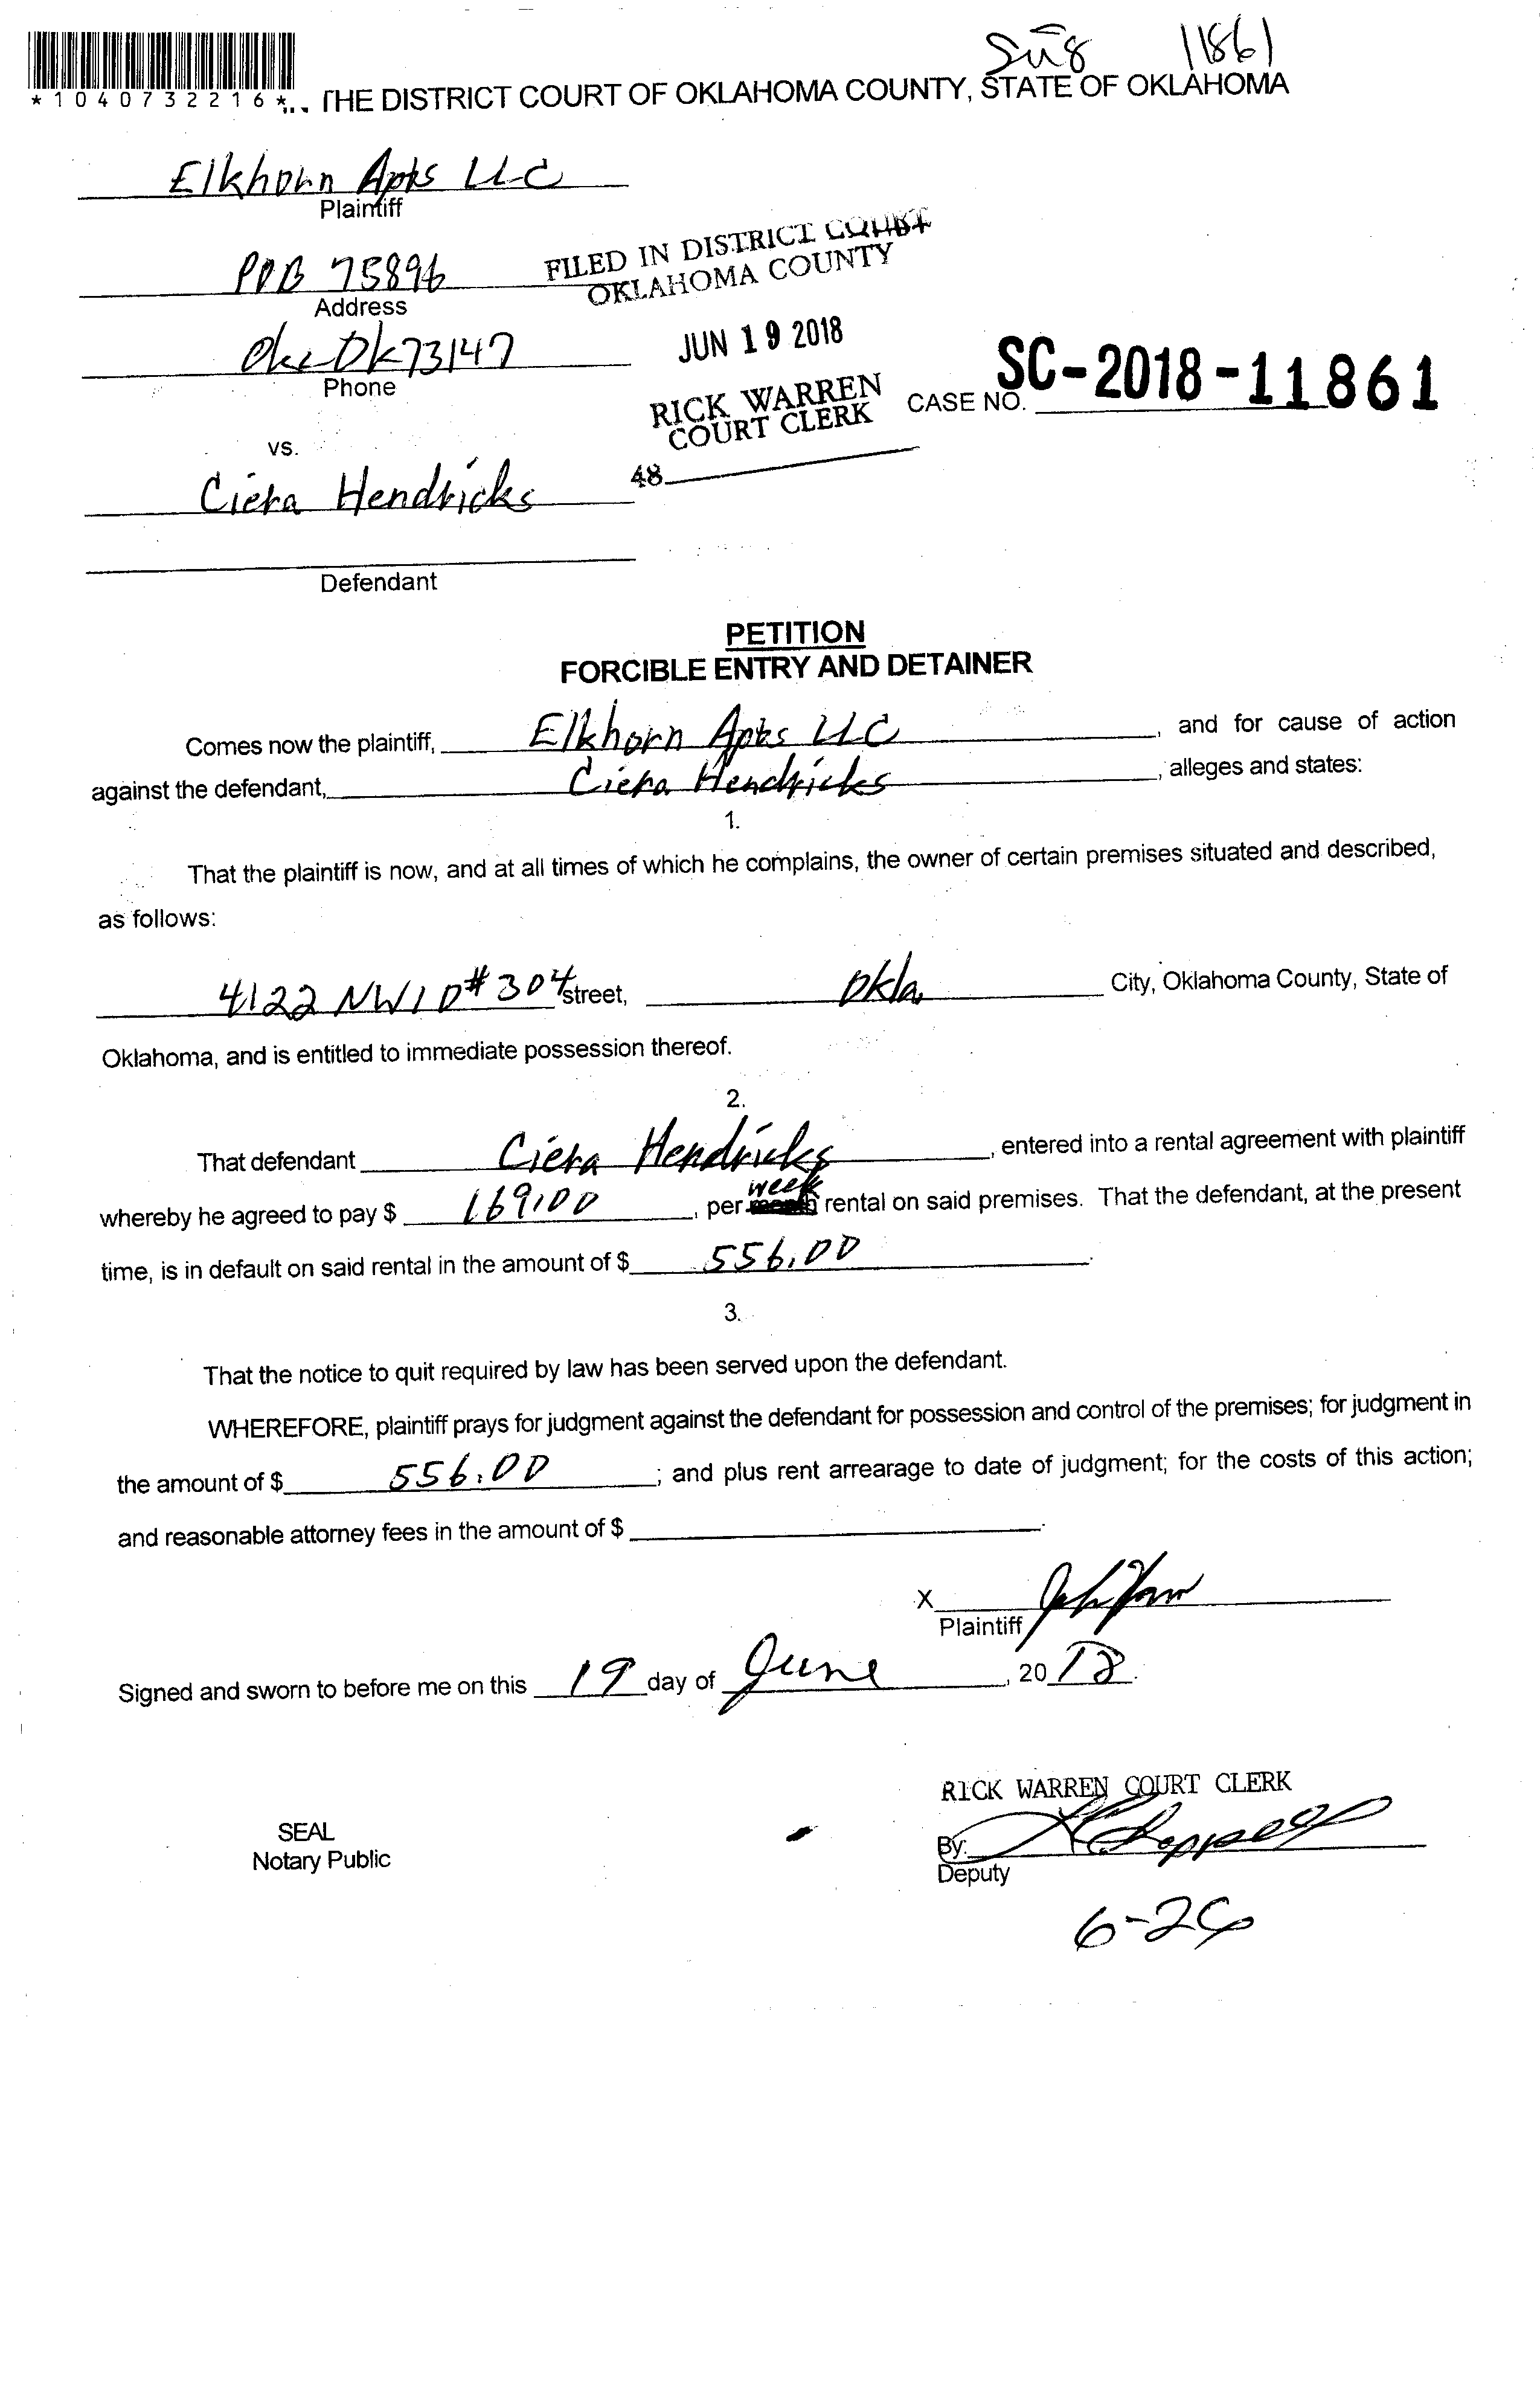 11861
*1040732216*
THE DISTRICT COURT OF OKLAHOMA COUNTY, STATE OF OKLAHOMA
Elkhorn Apts LLC
Plaintiff
POB 75896
Address
Okc Ok 73147
Phone
FILED IN DISTRICT COURT
OKLAHOMA COUNTY
JUN 19 2018
RICK WARREN
COURT CLERK
48
CASE NO. SC-2018-11861
vs.
Ciera Hendricks
Defendant
PETITION
FORCIBLE ENTRY AND DETAINER
Comes now the plaintiff, Elkhorn Apts LLC, and for cause of action
against the defendant, Ciera Hendricks, alleges and states:
1.
That the plaintiff is now, and at all times of which he complains, the owner of certain premises situated and described,
as follows:
4122 NW10 #304 street, Okla. City, Oklahoma County, State of
Oklahoma, and is entitled to immediate possession thereof.
2.
That defendant Ciera Hendricks, entered into a rental agreement with plaintiff
week
whereby he agreed to pay $ 169.00, per month rental on said premises. That the defendant, at the present
time, is in default on said rental in the amount of $ 556.00.
3.
That the notice to quit required by law has been served upon the defendant.
WHEREFORE, plaintiff prays for judgment against the defendant for possession and control of the premises; for judgment in
the amount of $ 556.00; and plus rent arrearage to date of judgment; for the costs of this action;
and reasonable attorney fees in the amount of $
X
Plaintiff
Signed and sworn to before me on this 19 day of June, 2018.
RICK WARREN COURT CLERK
SEAL
Notary Public
By:
Deputy
6-26